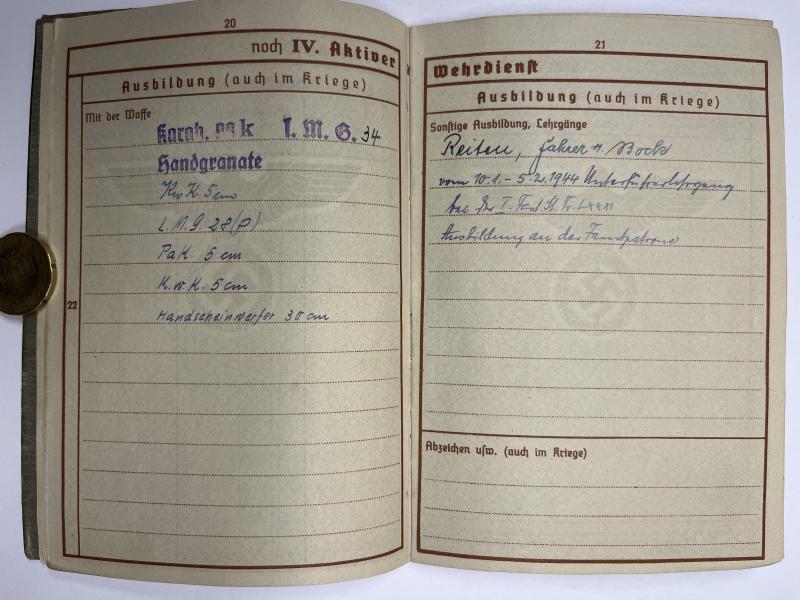 20
noch IV. Aktiver
Ausbildung (auch im Kriege)
Mit der Waffe
Karab. 98 k l. M. G. 34
Handgranate
KwK 5 cm
l. M. G. 28 (p)
Pak. 5 cm
K.w.K. 5 cm
Handscheinwerfer 30 cm
22
21
Wehrdienst
Ausbildung (auch im Kriege)
Sonstige Ausbildung, Lehrgänge
Reiten, Fahren v. Bock
vom 10.1. – 5.2.1944 Unterführerlehrgang
bei der I. Fest. St. Tr. LXXXI
Ausbildung an der Faustpatrone
Abzeichen usw. (auch im Kriege)